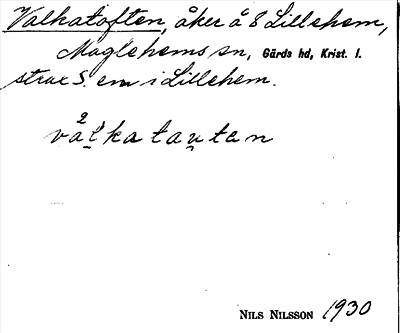 Valkatoften, åker å 8 Lillehem,
Maglehems sn, Gärds hd, Krist. l.
strax S. om i Lillehem.
2
valkatau̯ten
NILS NILSSON 1930